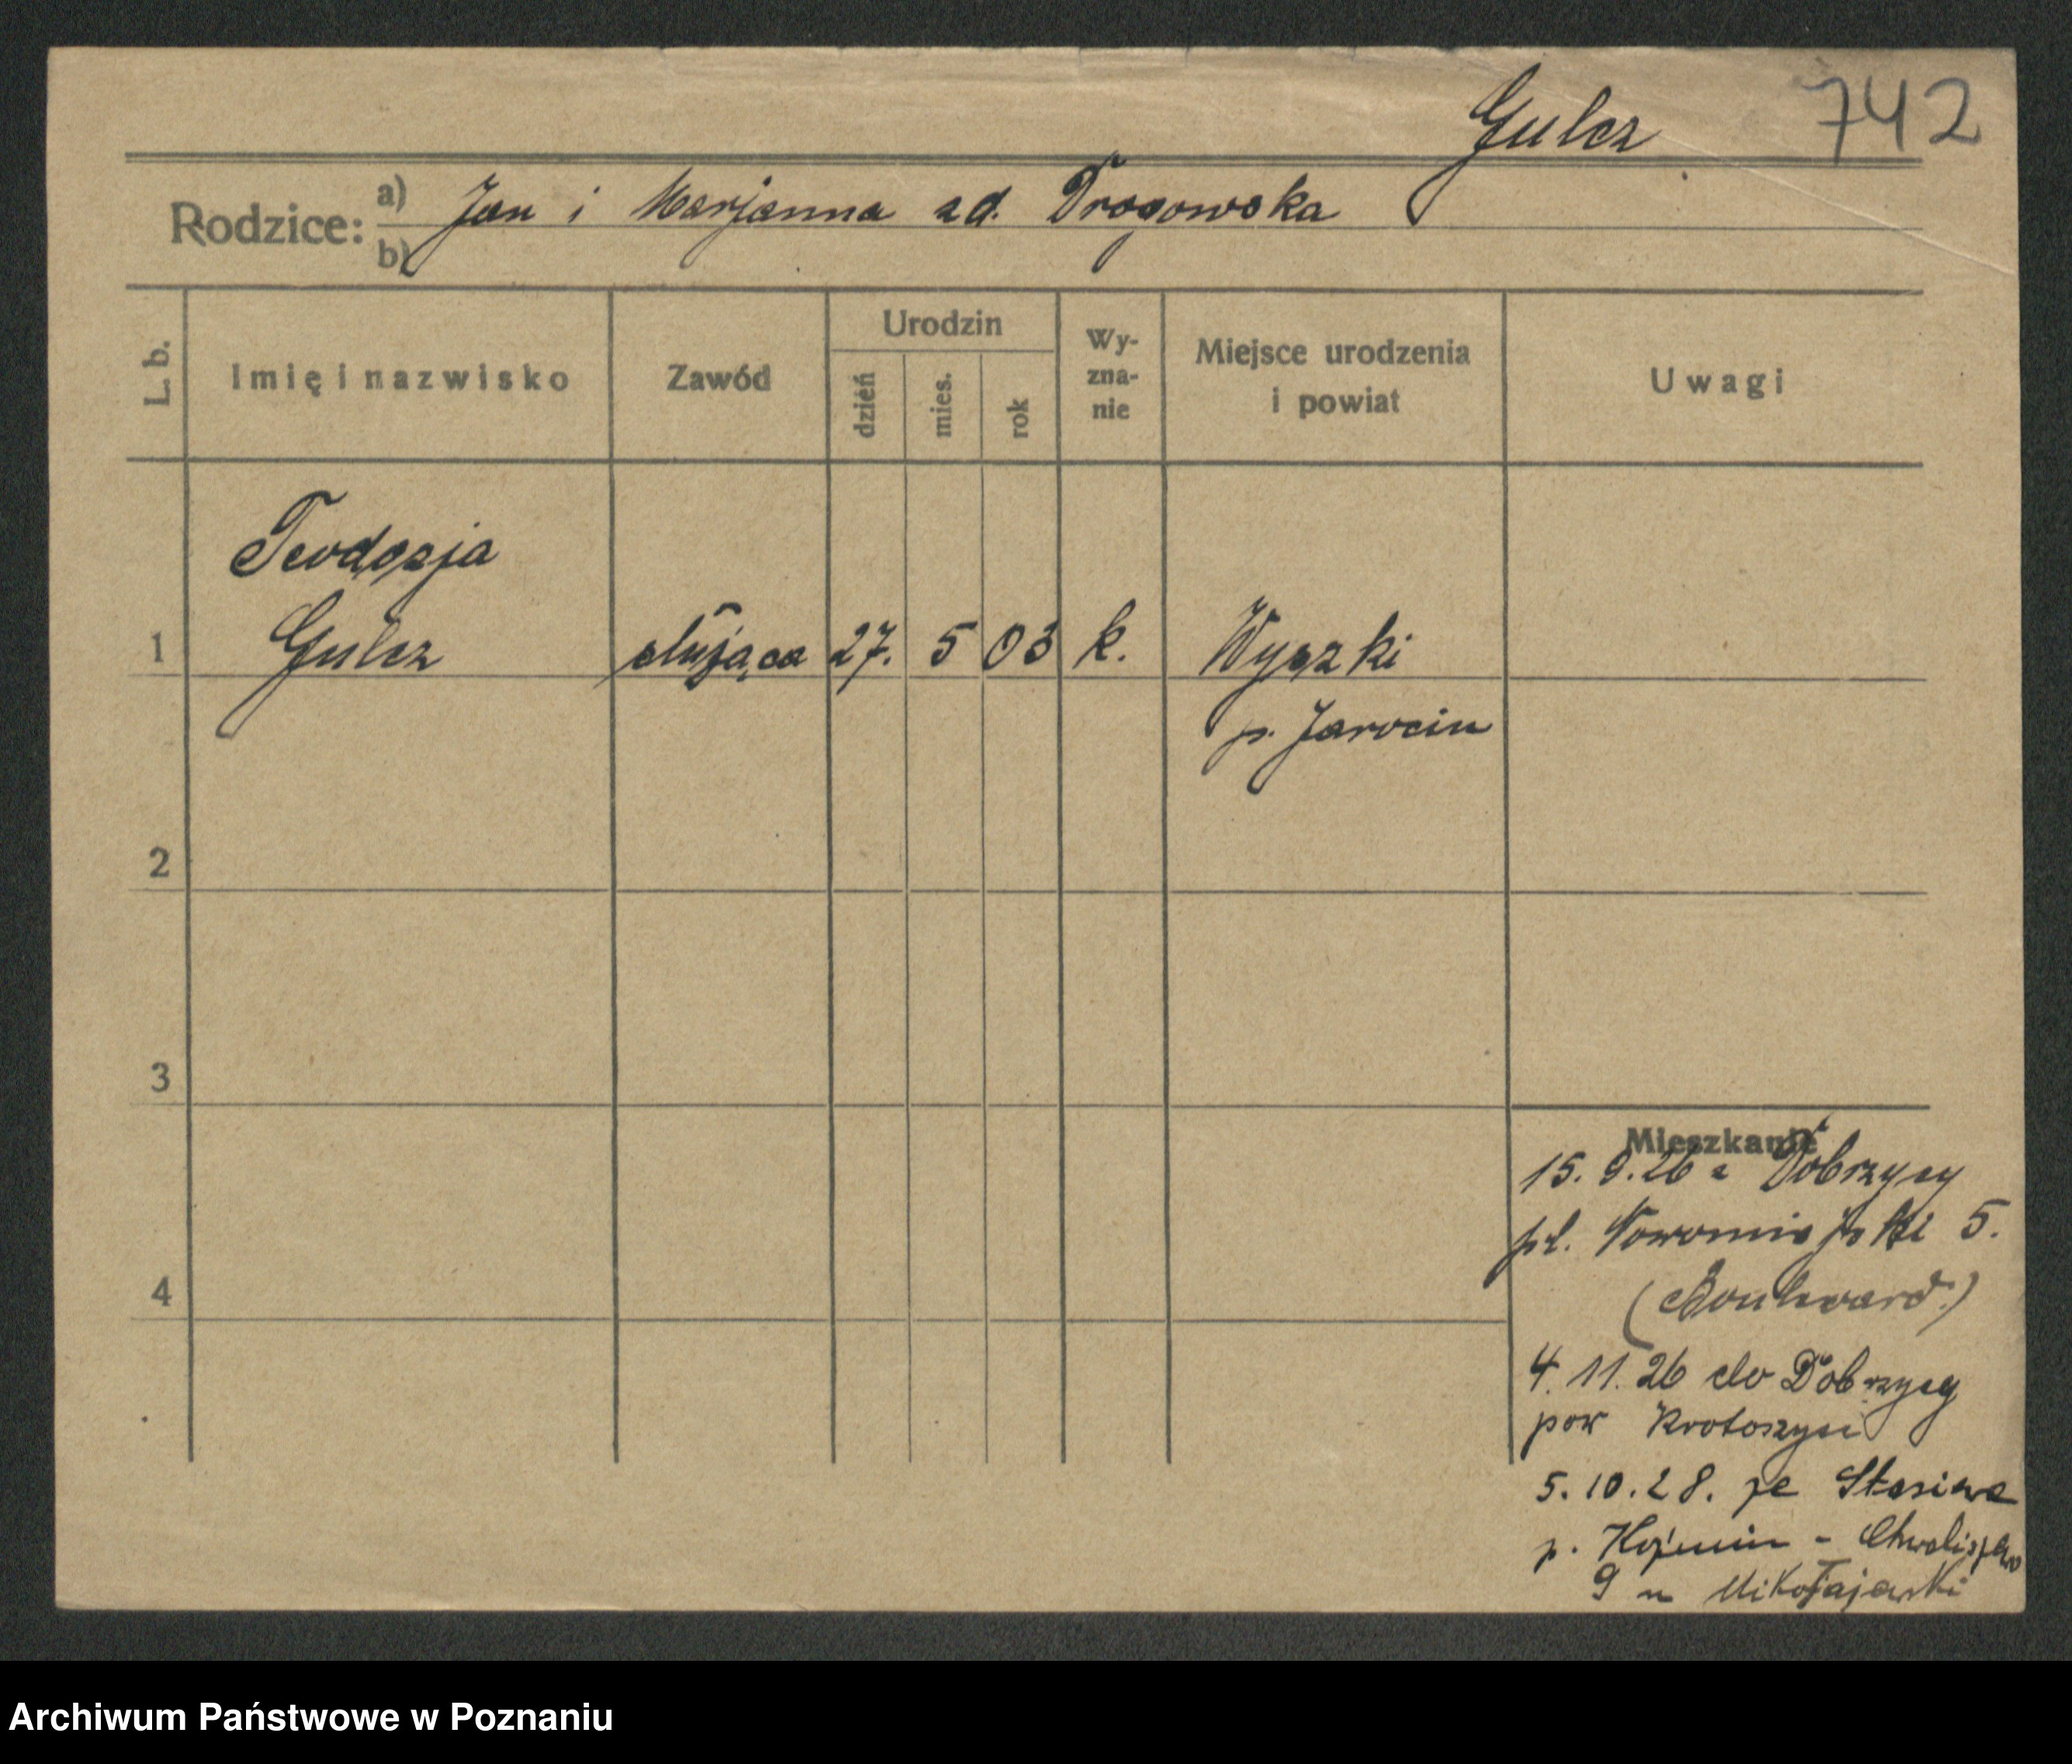 Gulcz 742
Rodzice: a) Jan i Marjanna zd. Drogowska
b)
L. b. Imię i nazwisko Zawód Urodzin dzień mies. rok Wy-zna-nie Miejsce urodzenia i powiat Uwagi
Teodozja
1 Gulcz służąca 27. 5 03 k. Wyszki
p. Jarocin
2
3
Mieszkanie
15. 9. 26 z Dobrzycy
pl. Nowomiejski 5.
4
(Boulevard.)
4. 11. 26 do Dobrzycy
pow Krotoszyn
5. 10. 28. ze Staniewa
p. Koźmin - Chwaliszewo
9 u Mikołajewski
Archiwum Państwowe w Poznaniu